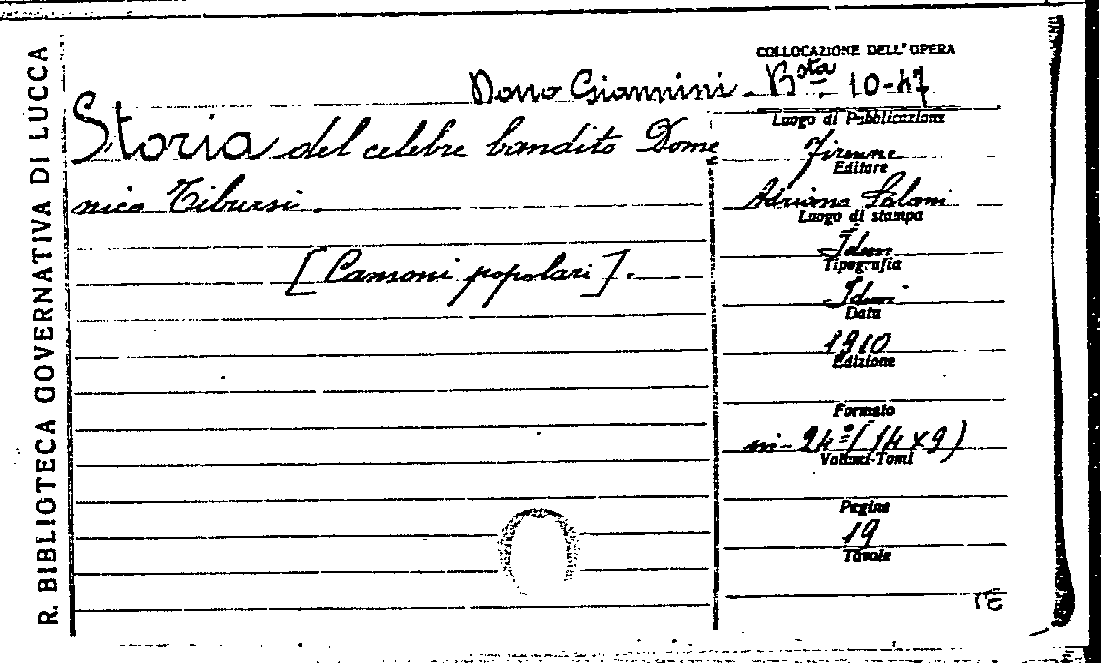 R. BIBLIOTECA GOVERNATIVA DI LUCCA
COLLOCAZIONE DELL'OPERA
Dono Giannini - Bsta 10-47
Storia del celebre bandito Dome
nico Tiburzi.
[Canzoni popolari].
Luogo di Pubblicazione
Firenze
Editore
Adriano Salani
Luogo di stampa
Idem
Tipografia
Idem
Data
1910
Edizione
Formato
in-24º (14 x 9)
Volumi-Tomi
Pagine
19
Tavole